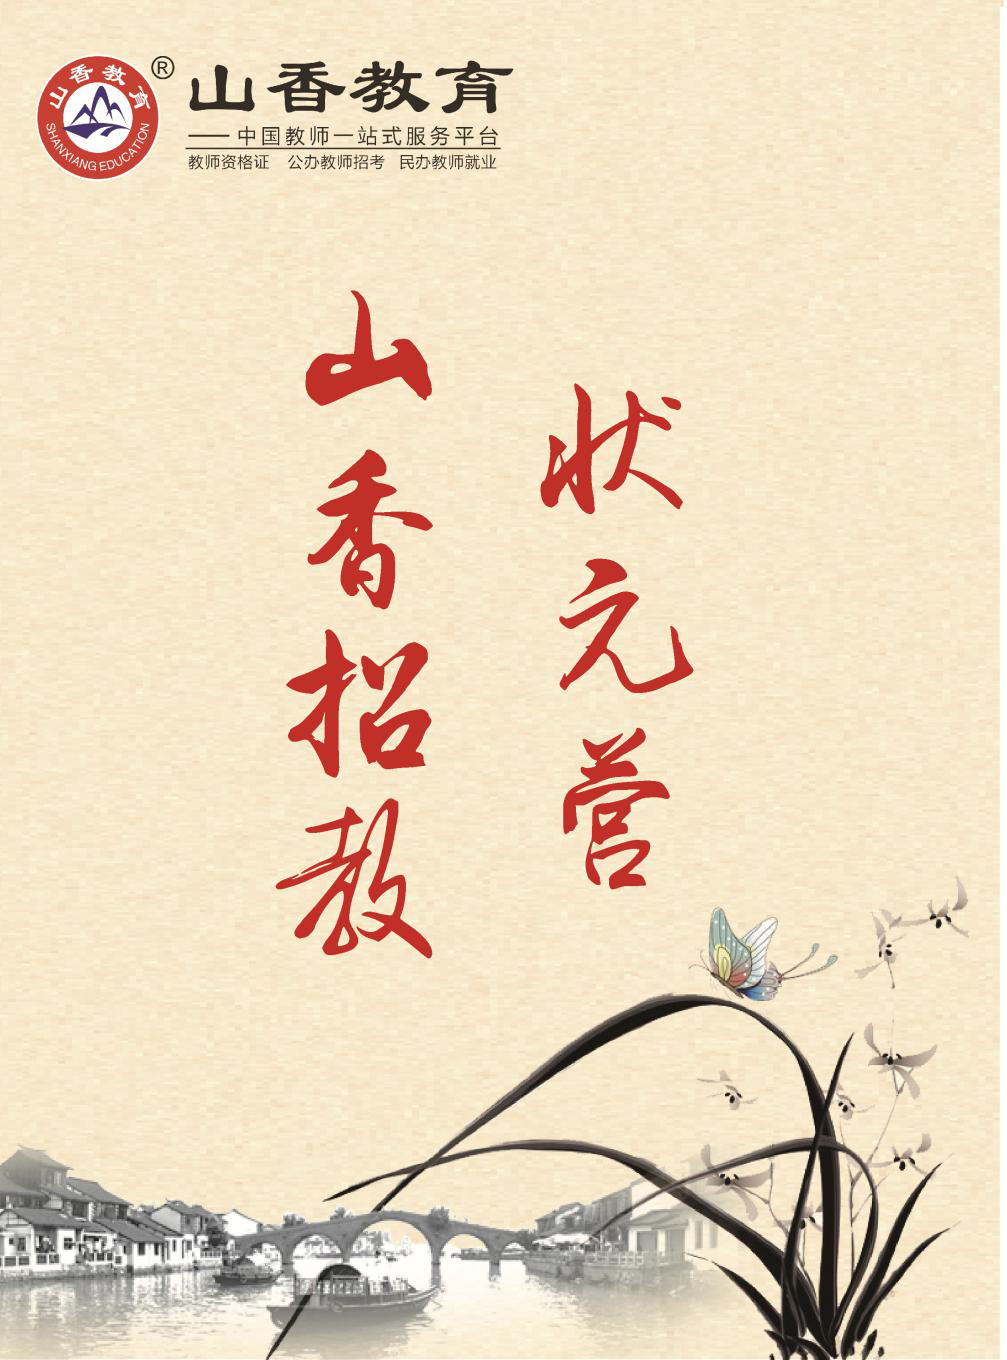 山香教育
SHANXIANG EDUCATION
®
山香教育
——中国教师一站式服务平台
教师资格证 公办教师招考 民办教师就业
山香招教
状元营